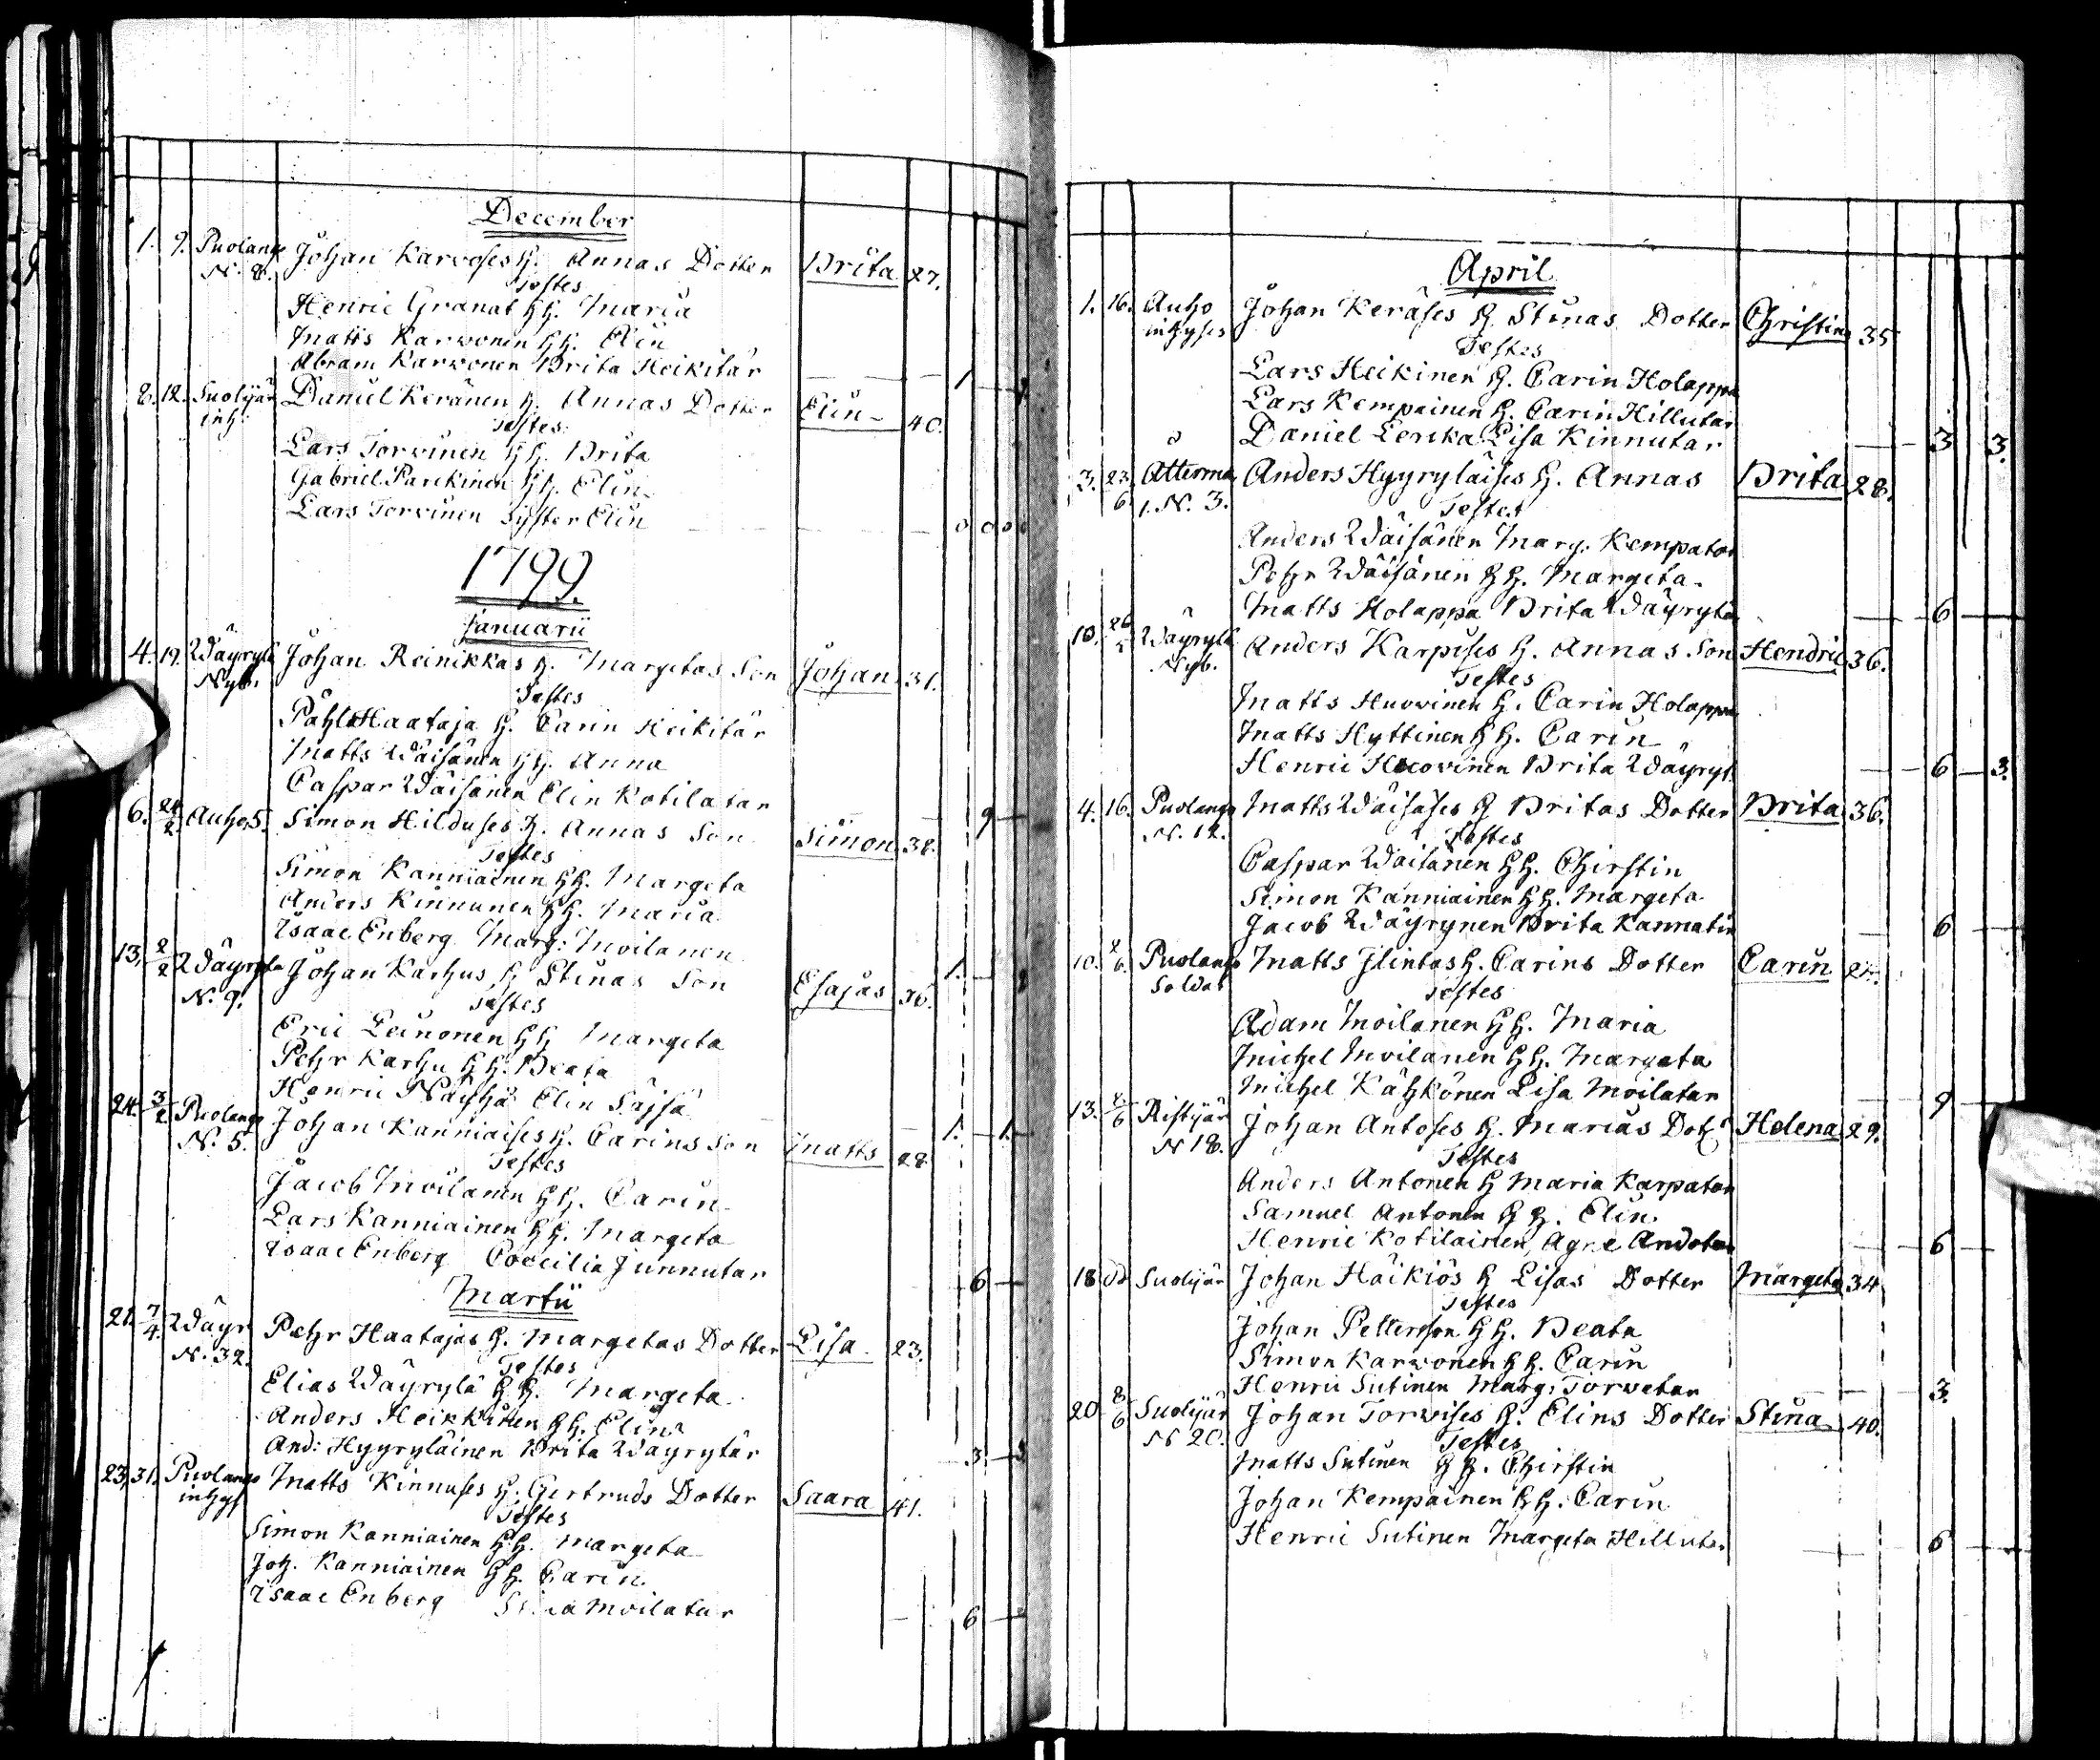 December
1. 9. Puolango Johan Karvoses H. Annas Dotter Brita 27.
N. 8. Testes
Henric Granat HH. Maria
Matts Karvonen HH. Elin
Abram Karvonen Brita Heikitär 1
8. 12. Suolijär Daniel Keränen H. Annas Dotter Elin 40.
inh. Testes
Lars Torvinen HH. Brita
Gabriel Parckinen HH. Elin
Lars Torvinen Syster Elin 0 0 0 0
1799.
Januarii
4. 19. Wäyrylä Johan Reinikkas H. Margetas Son Johan 31.
Nyb. Testes
Påhl Haataja H. Carin Heikitär
Matts Wäisänen HH. Anna
Caspar Wäisänen Elin Kotilatar 9
6. 24/2. Auho 5. Simon Hilduses H. Annas Son Simon 38.
Testes
Simon Kanniainen HH. Margeta
Anders Kinnunen HH. Maria
Isaac Enberg Marg: Moilanen 1.
13. 2/2 Wäyrylä Johan Karhus H Stinas Son Esajas 36.
N. 9. Testes
Eric Leinonen HH Margeta
Pehr Karhu HH. Beata
Henric Näyhä Elin Säjsä 1. 1.
24. 3/2 Puolango Johan Kanniaises H. Carins Son Matts 28
N. 5. Testes
Jacob Moilanen HH. Carin
Lars Kanniainen HH. Margeta
Isaac Enberg Coecilia Junnutar 6
Martii
21. 7/4. Wäyr Pehr Haatajas H. Margetas Dotter Lisa 23.
N. 32. Testes
Elias Wäyrylä HH. Margeta
Anders Heikkinen HH. Elin
And: Hyyryläinen Brita Wäyrytär 3.
23. 31. Puolango Matts Kinnuses H. Gertruds Dotter Saara 41.
inhys Testes
Simon Kanniainen HH. Margeta
Joh. Kanniainen HH. Carin.
Isaac Enberg Moilatar 6
April
1. 16. Auho Johan Keräses H Stinas Dotter Christina 35
inhyses Testes
Lars Heikinen H. Carin Holappa
Lars Kempainen H. Carin Hillutar
Daniel Lerika Lisa Kinnutar 3 3.
3. 23/6. Atterma Anders Hyyryläises H. Annas Brita 28.
1. N. 3. Testes
Anders Wäisänen Marg. Kempatar
Pehr Wäisänen HH. Margeta
Matts Holappa Brita Wäyrytär 6
10. Wäyrylä Anders Karpises H. Annas Son Hendric 36.
Nyb. Testes
Matts Huovinen H. Carin Holappa
Matts Hyttinen HH. Carin
Henric Huovinen Brita Wäyryt. 6 3.
4. 16. Puolango Matts Wäisäses H Britas Dotter Brita 36.
N. 12. Testes
Caspar Wäisänen HH. Chirstin
Simon Kanniainen HH. Margeta
Jacob Wäyrynen Brita Kannatin 6
10. 8/6. Puolango Matts Flintas H. Carins Dotter Carin
Soldat Testes
Adam Moilanen HH. Maria
Michel Moilanen HH. Margeta
Michel Kähkönen Lisa Moilatar 9
13. 8/6 Ristijär Johan Antoses H. Marias Dotr Helena 29.
N 18. Testes
Anders Antonen H Maria Karpatar
Samuel Antonen HH. Elin
Henric Kotilainen Agne Andotar 6
18 do Suolijär Johan Häikiös H Lisas Dotter Margeta 34
Testes
Johan Petterson HH. Beata
Simon Karvonen HH. Carin
Henric Sutinen Marg: Torvetar 3.
20. 8/6 Suolijär Johan Torvises H. Elins Dotter Stina 40.
N 20. Testes
Matts Sutinen HH. Chirstin
Johan Kempainen HH. Carin
Henric Sutinen Margeta Hillutar 6